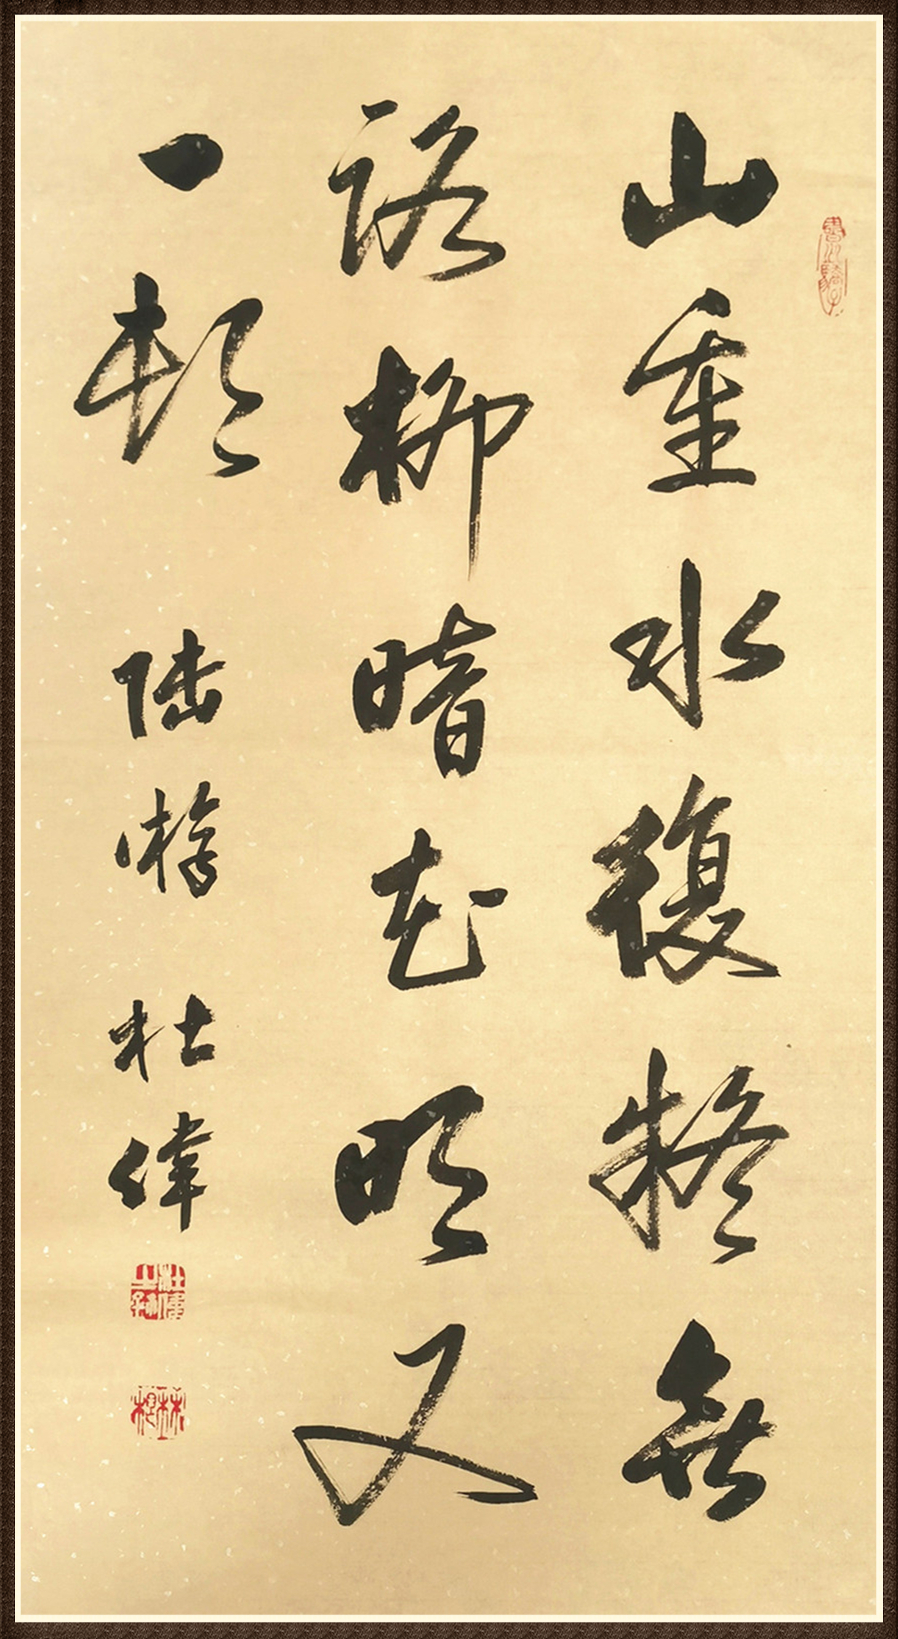 山重水復疑無
路柳暗花明又
一邨
陸游
杜偉